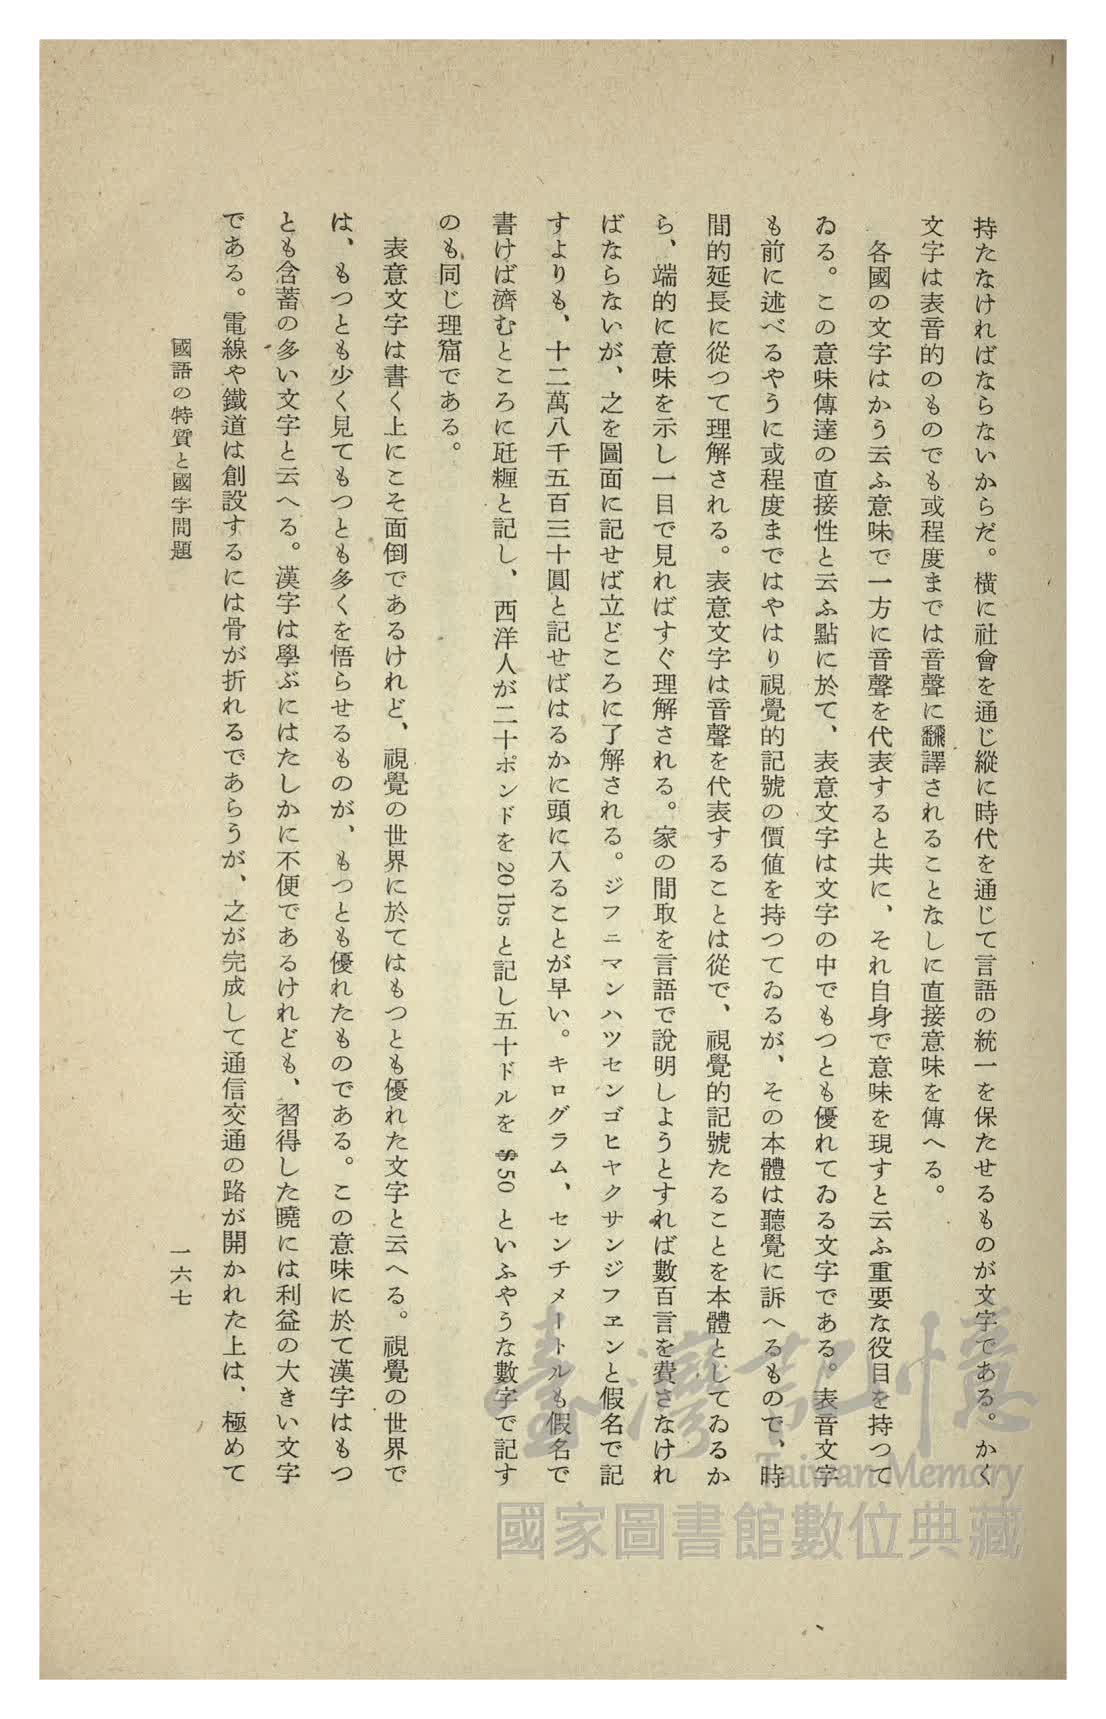 持たなければならないからだ。橫に社會を通じ縱に時代を通じて言語の統一を保たせるものが文字である。かく
文字は表音的のものでも或程度までは音聲に飜譯されることなしに直接意味を傳へる。
各國の文字はかう云ふ意味で一方に音聲を代表すると共に、それ自身で意味を現すと云ふ重要な役目を持つて
ゐる。この意味傳達の直接性と云ふ點に於て、表意文字は文字の中でもつとも優れてゐる文字である。表音文字
も前に述べるやうに或程度まではやはり視覺的記號の價値を持つてゐるが、その本體は聽覺に訴へるもので、時
間的延長に從つて理解される。表意文字は音聲を代表することは從で、視覺的記號たることを本體としてゐるか
ら、端的に意味を示し一目で見ればすぐ理解される。家の間取を言語で說明しようとすれば數百言を費さなけれ
ばならないが、之を圖面に記せば立どころに了解される。ジフニマンハツセンゴヒヤクサンジフヱンと假名で記
すよりも、十二萬八千五百三十圓と記せばはるかに頭に入ることが早い。キログラム、センチメートルも假名で
書けば濟むところに瓩糎と記し、西洋人が二十ポンドを 20 lbs と記し五十ドルを $ 50 といふやうな數字で記す
のも同じ理窟である。
表意文字は書く上にこそ面倒であるけれど、視覺の世界に於てはもつとも優れた文字と云へる。視覺の世界で
は、もつとも少く見てもつとも多くを悟らせるものが、もつとも優れたものである。この意味に於て漢字はもつ
とも含蓄の多い文字と云へる。漢字は學ぶにはたしかに不便であるけれども、習得した曉には利益の大きい文字
である。電線や鐵道は創設するには骨が折れるであらうが、之が完成して通信交通の路が開かれた上は、極めて
國語の特質と國字問題
一六七
臺灣記憶
Taiwan Memory
國家圖書館數位典藏